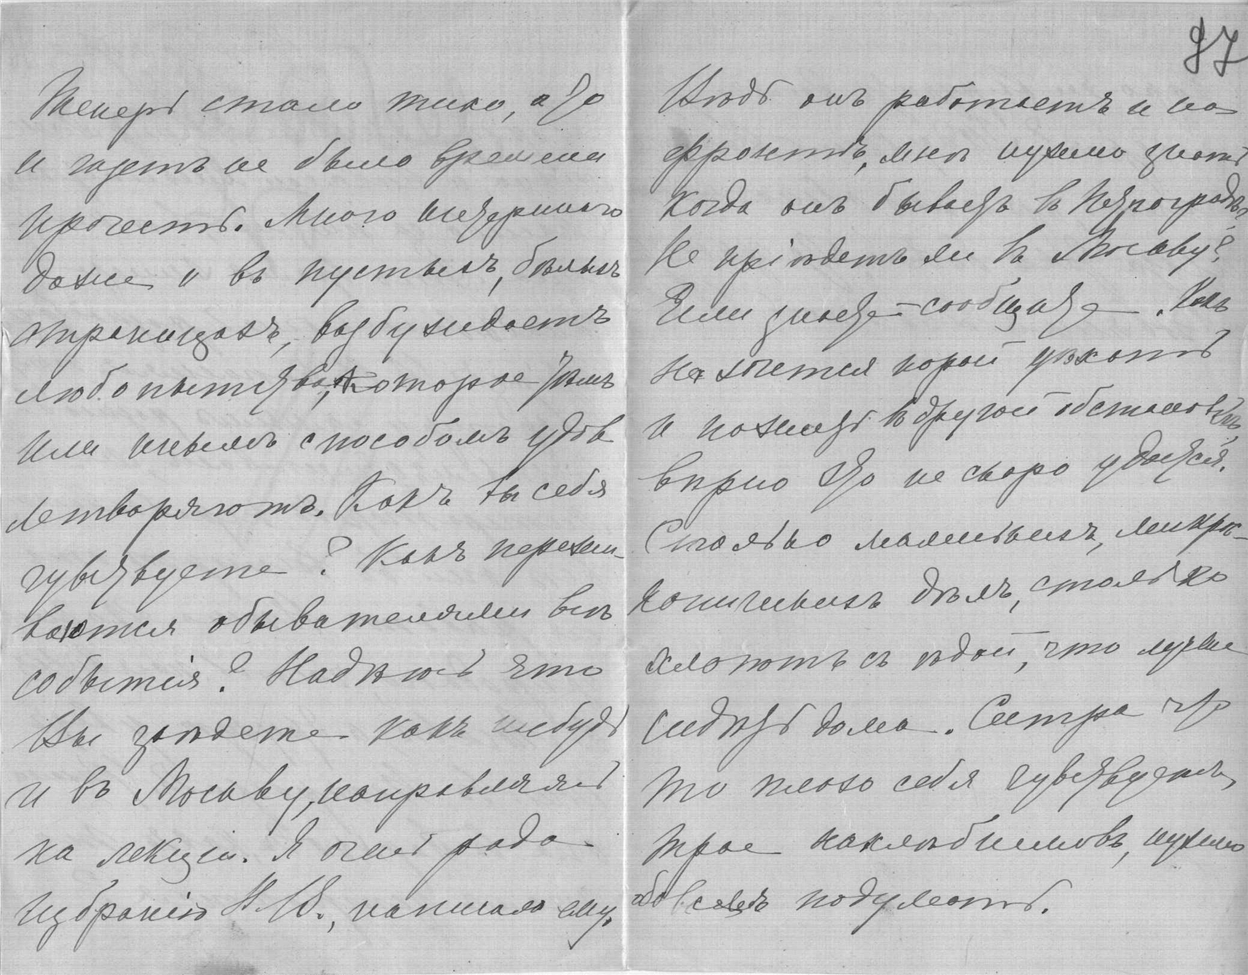 97
Теперь стало тихо, а то
и газетъ не было времени
прочесть. Много интереснаго
даже и въ пустыхъ, бѣлыхъ
страницахъ, возбуждаетъ
любопытство, которое тѣмъ
или инымъ способомъ удов
летворяютъ. Какъ Вы себя
чувствуете? Какъ пережи
ваются обывателями всѣ
событія? Надѣюсь что
Вы заѣдете какъ нибудь
и въ Москву, направляясь
на лекціи. Я очень рада
избранію Н.
написала ему.
Вѣдь онъ работаетъ и на
фронтѣ, мнѣ нужно знать
когда онъ бываетъ въ Петроградѣ,
Не пріѣдетъ ли въ Москву?
Если знаете – сообщите. Какъ
не хочется порой уѣхать
и пожить въ другой обстановкѣ,
вѣрно это не скоро удастся.
Столько маленькихъ, микрос-
копическихъ дѣлъ, столько
хлопотъ съ ѣдой, что лучше
сидѣть дома. Сестра что
то плохо себя чувствуетъ,
трое нужно
обо всемъ подумать.